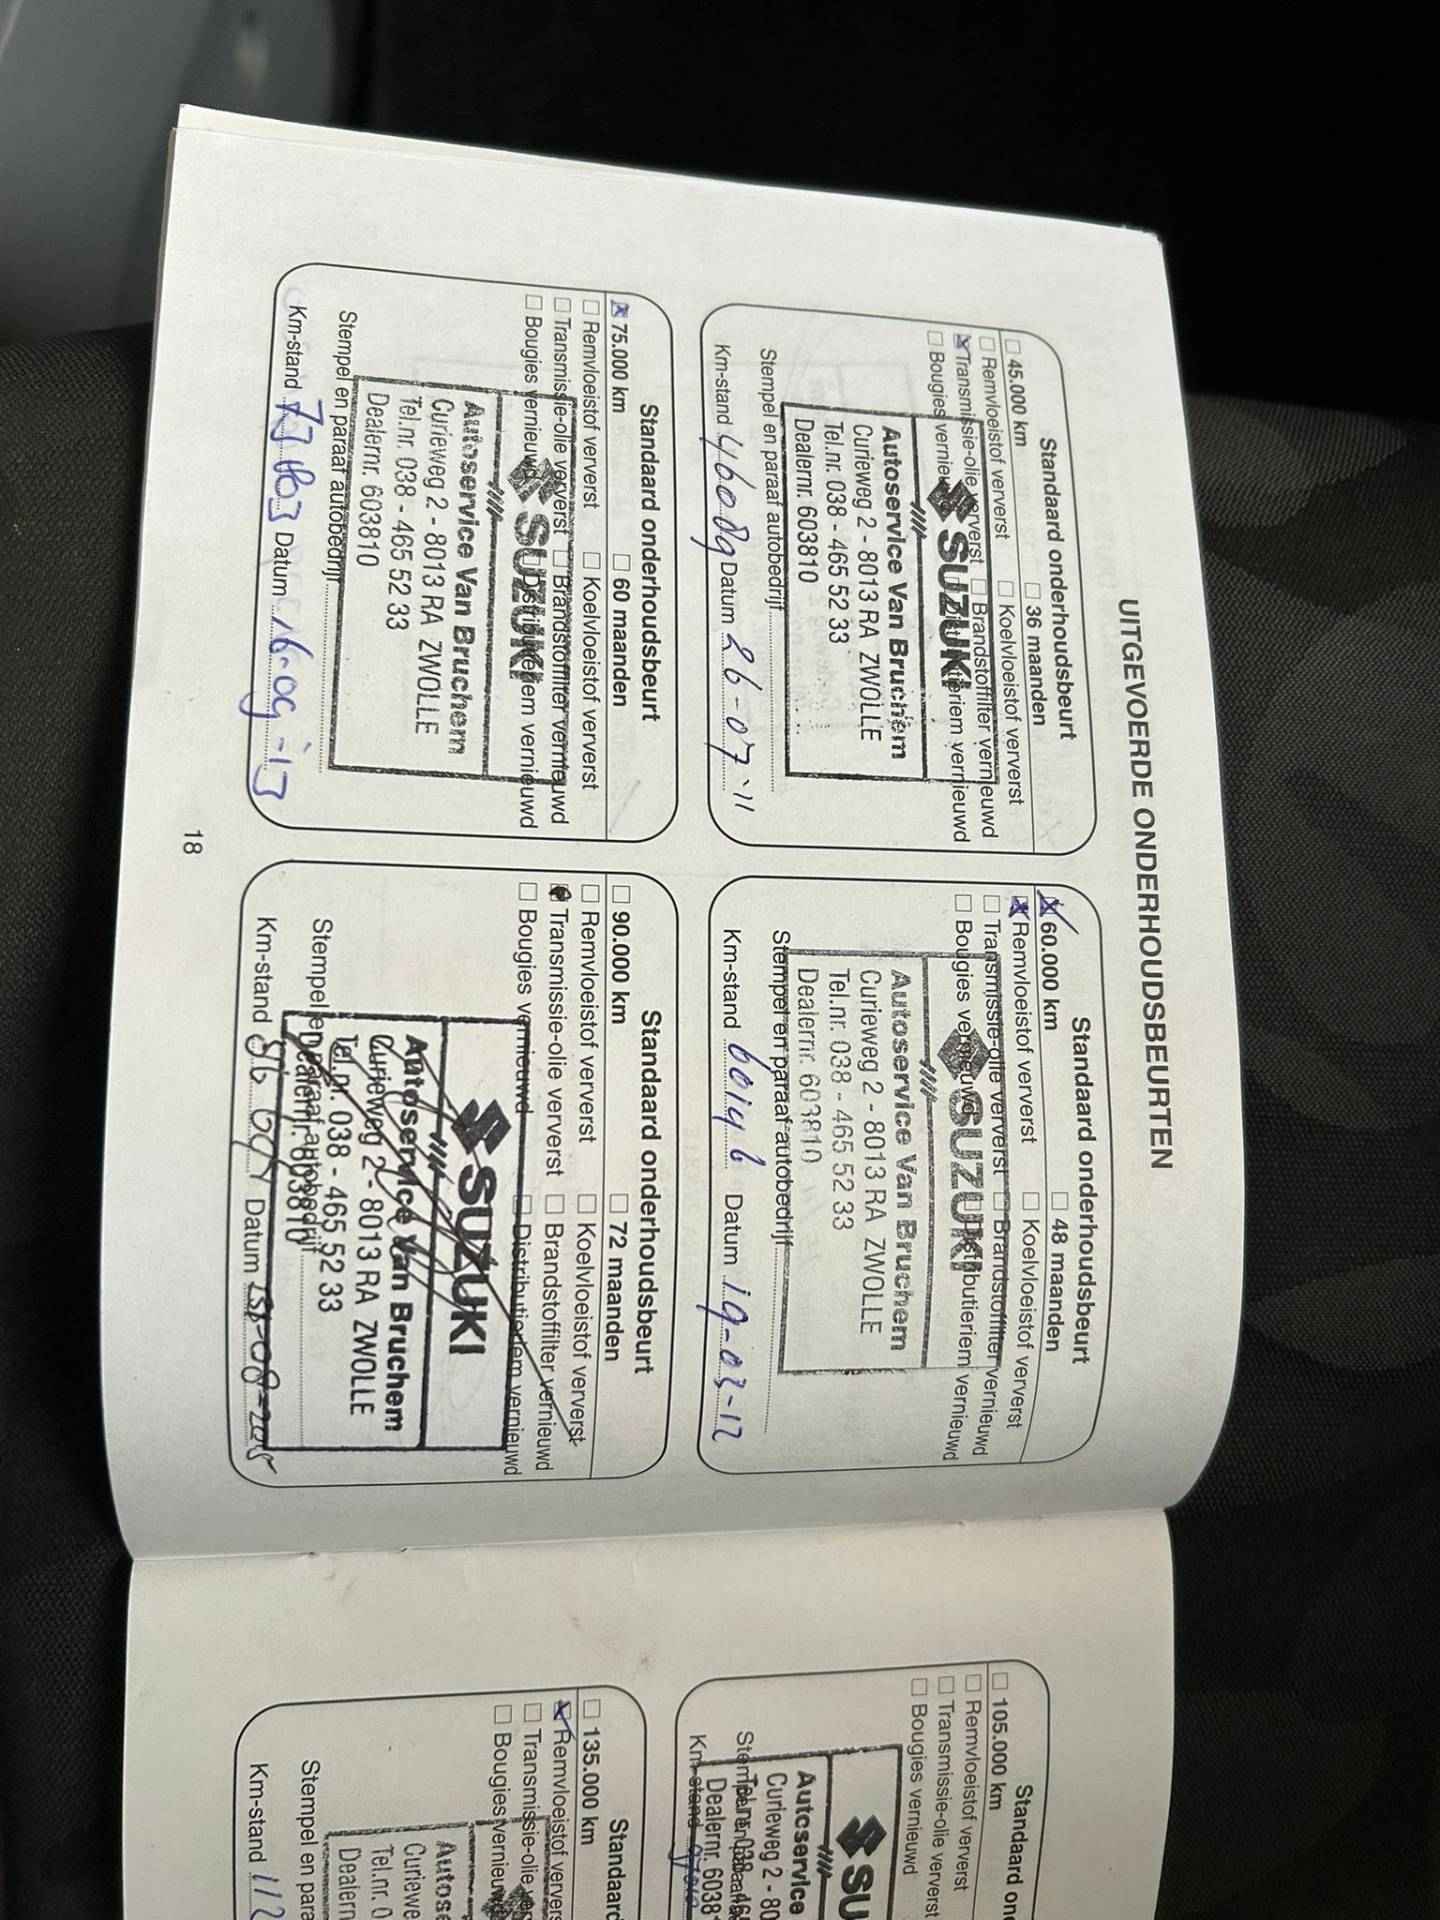 UITGEVOERDE ONDERHOUDSBEURTEN
Standaard onderhoudsbeurt
45.000 km 36 maanden
Remvloeistof ververst Koelvloeistof ververst
Transmissie-olie ververst Brandstoffilter vernieuwd
Bougies vernieuwd Distributieriem vernieuwd
SUZUKI
Autoservice Van Bruchem
Curieweg 2 - 8013 RA ZWOLLE
Tel.nr. 038 - 465 52 33
Dealernr. 603810
Stempel en paraaf autobedrijf
Km-stand 46089 Datum 26-07-'11
Standaard onderhoudsbeurt
60.000 km 48 maanden
Remvloeistof ververst Koelvloeistof ververst
Transmissie-olie ververst Brandstoffilter vernieuwd
Bougies vernieuwd Distributieriem vernieuwd
SUZUKI
Autoservice Van Bruchem
Curieweg 2 - 8013 RA ZWOLLE
Tel.nr. 038 - 465 52 33
Dealernr. 603810
Stempel en paraaf autobedrijf
Km-stand 60146 Datum 19-03-12
Standaard onderhoudsbeurt
75.000 km 60 maanden
Remvloeistof ververst Koelvloeistof ververst
Transmissie-olie ververst Brandstoffilter vernieuwd
Bougies vernieuwd Distributieriem vernieuwd
SUZUKI
Autoservice Van Bruchem
Curieweg 2 - 8013 RA ZWOLLE
Tel.nr. 038 - 465 52 33
Dealernr. 603810
Stempel en paraaf autobedrijf
Km-stand Datum 16-09-'13
Standaard onderhoudsbeurt
90.000 km 72 maanden
Remvloeistof ververst Koelvloeistof ververst
Transmissie-olie ververst Brandstoffilter vernieuwd
Bougies vernieuwd Distributieriem vernieuwd
SUZUKI
Autoservice Van Bruchem
Curieweg 2 - 8013 RA ZWOLLE
Tel.nr. 038 - 465 52 33
Dealernr. 603810
Stempel en paraaf autobedrijf
Km-stand Datum
18
Standaard on
105.000 km
Remvloeistof ververst
Transmissie-olie ververst
Bougies vernieuwd
SU
Autoservice
Curieweg 2 - 80
Tel.nr. 038 - 465
Dealernr. 6038
Km-stand
Standaard
135.000 km
Remvloeistof ververs
Transmissie-olie ver
Bougies vernieuwd
Autose
Curiewe
Tel.nr. 0
Dealern
Stempel en para
Km-stand 112